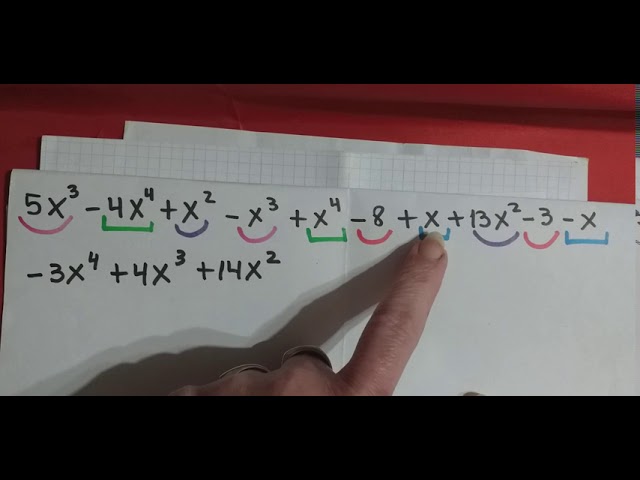 5x³ - 4x⁴ + x² - x³ + x⁴ - 8 + x + 13x² - 3 - x
- 3x⁴ + 4x³ + 14x²